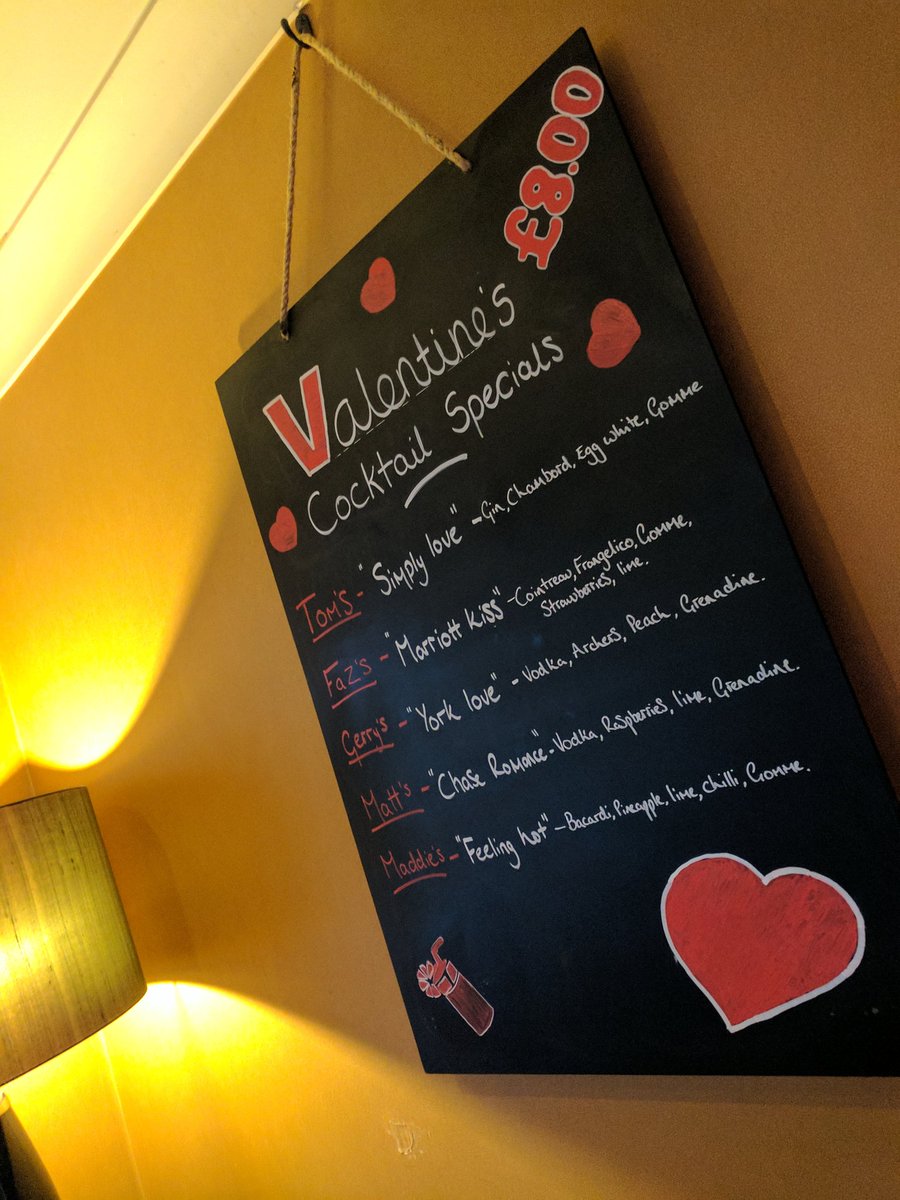 £8.00
Valentine's
Cocktail Specials
Tom's - "Simply love" - Gin, Chambord, Egg white, Gomme
Faz's - "Marriott kiss" - Cointreau, Frangelico, Gomme,
Strawberries, lime.
Gerry's - "York love" - Vodka, Archers, Peach, Grenadine.
Matt's - "Chase Romance" - Vodka, Raspberries, lime, Grenadine.
Maddie's - "Feeling hot" - Bacardi, Pineapple, lime, chilli, Gomme.